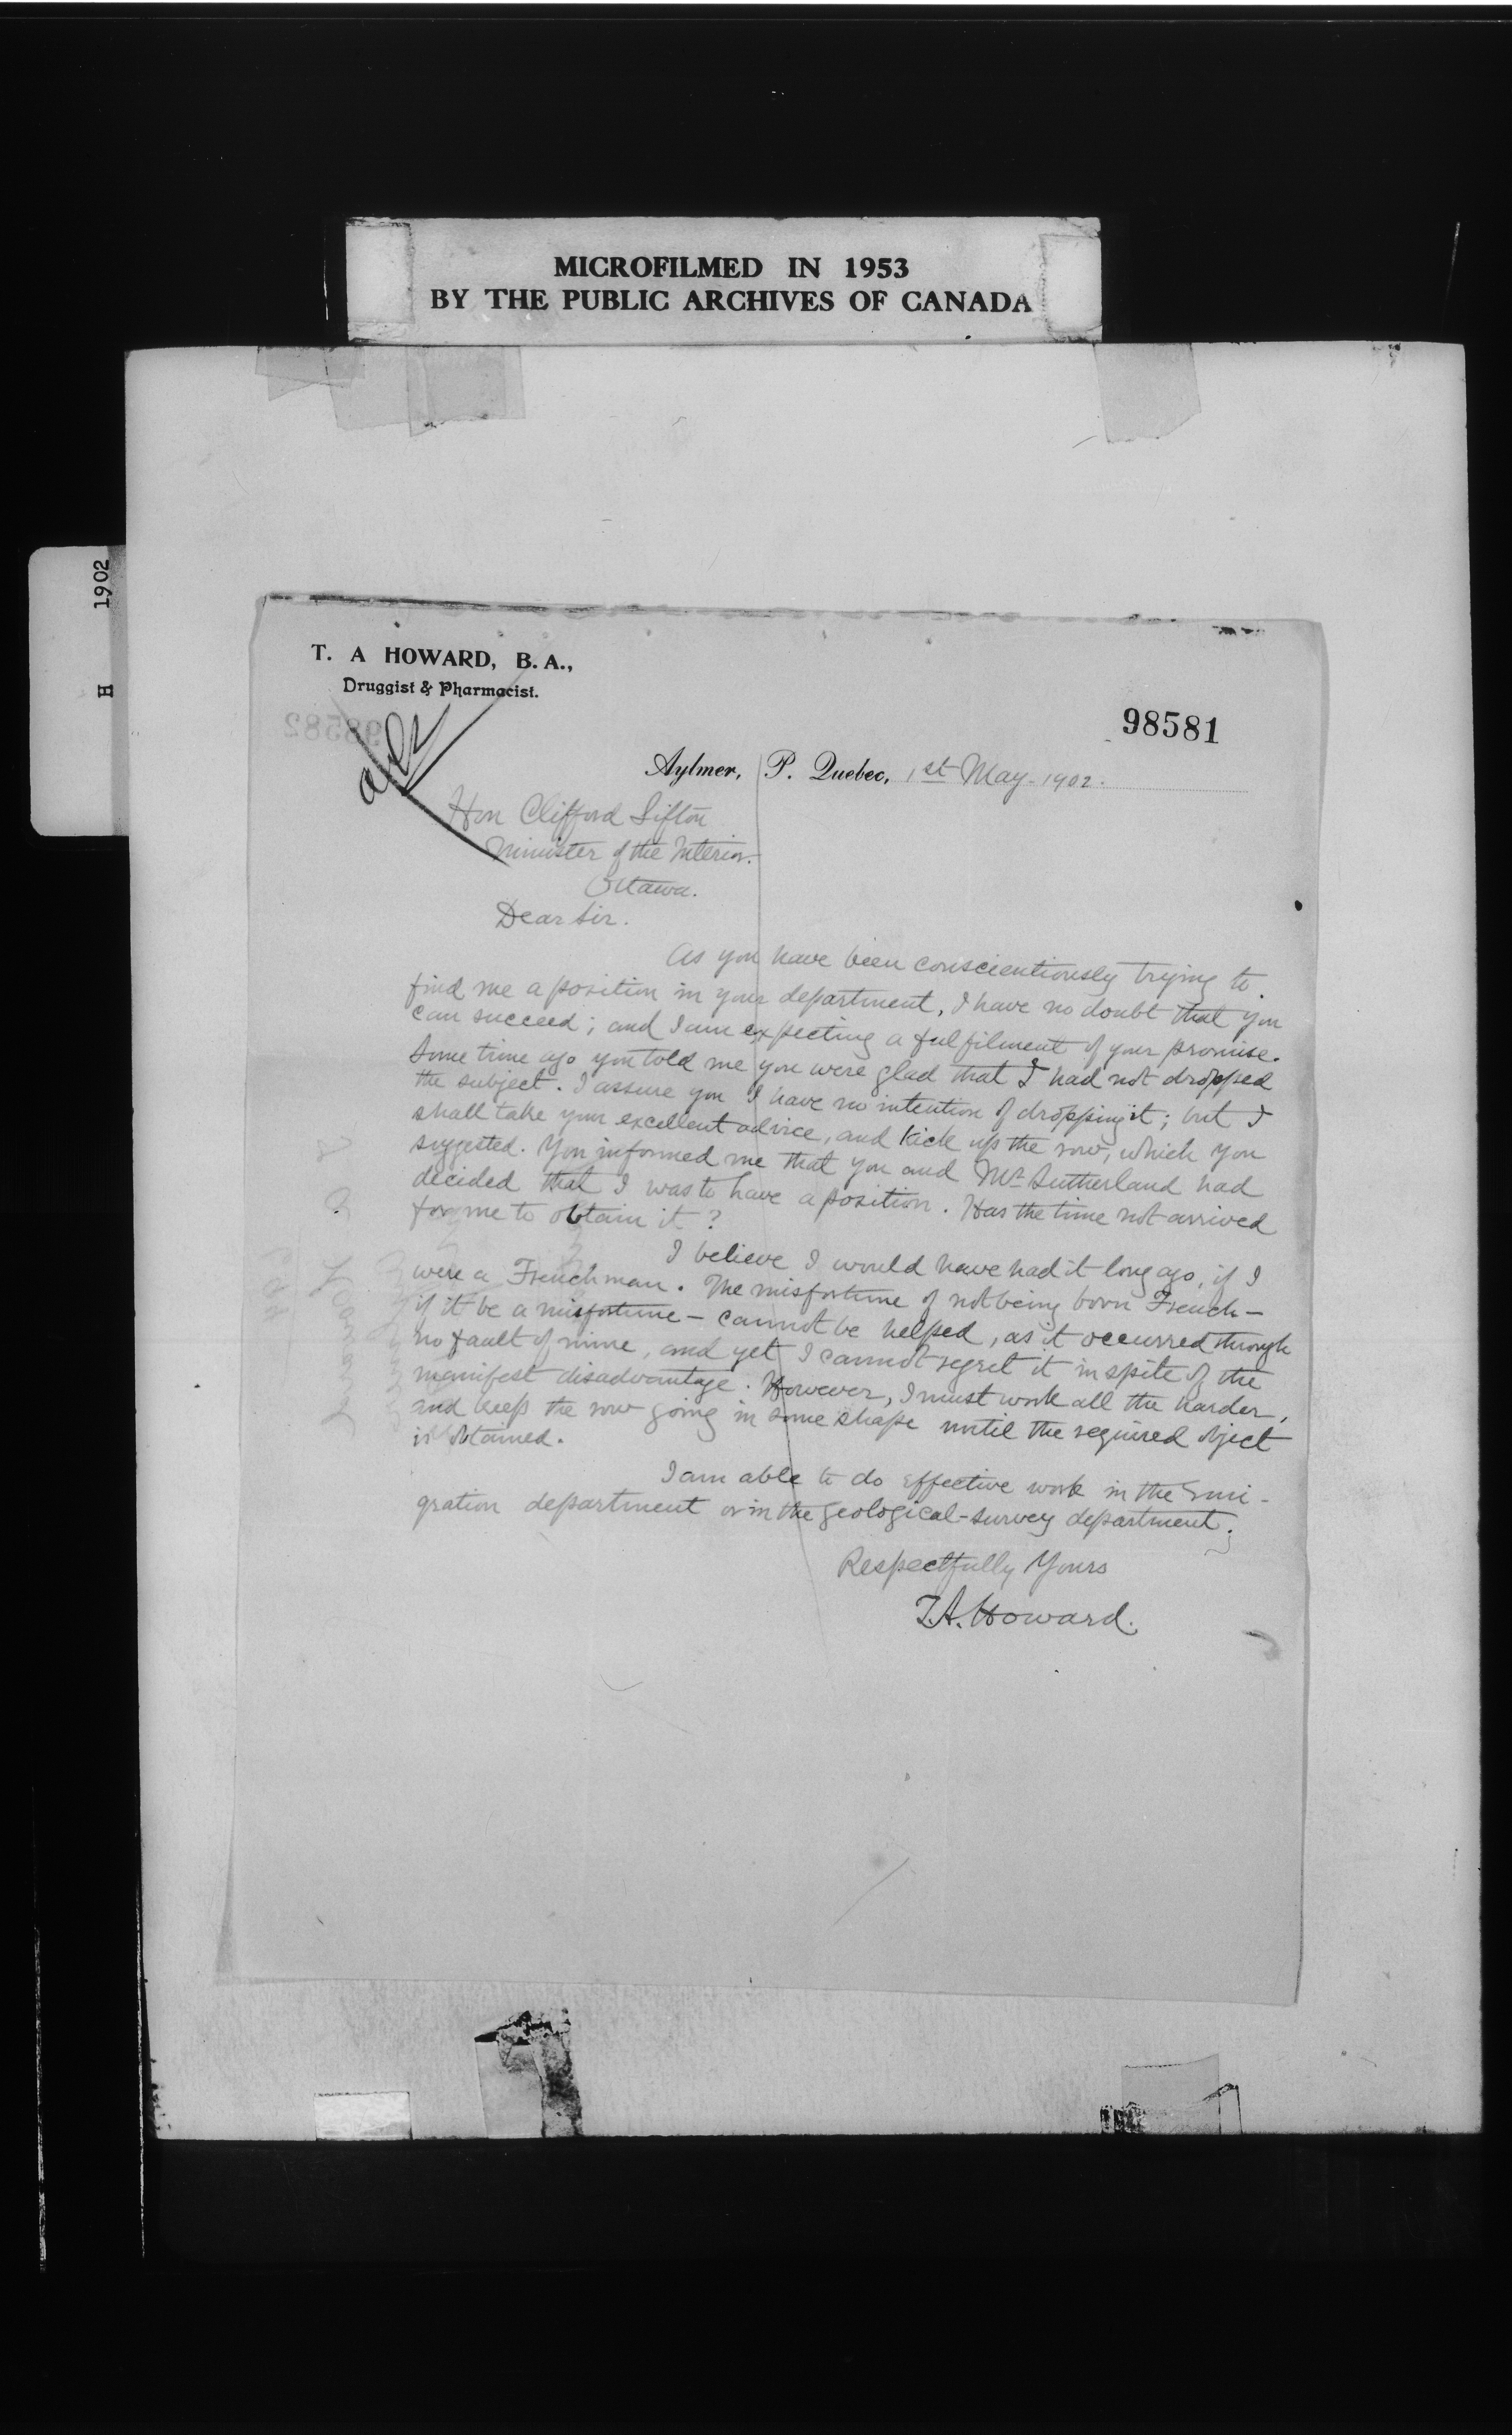 MICROFILMED IN 1953
BY THE PUBLIC ARCHIVES OF CANADA
H 1902
T. A HOWARD, B. A.,
Druggist & Pharmacist.
98581
98582
Aylmer, P. Quebec, 1st May. 1902.
Hon Clifford Sifton
Minister of the Interior.
Ottawa.
Dear Sir.
As you have been conscientiously trying to
find me a position in your department, I have no doubt that you
can succeed; and I am expecting a fulfilment of your promise.
Some time ago you told me you were glad that I had not dropped
the subject. I assure you I have no intention of dropping it; but I
shall take your excellent advice, and kick up the row, which you
suggested. You informed me that you and Mr Sutherland had
decided that I was to have a position. Has the time not arrived
for me to obtain it?
I believe I would have had it long ago, if I
were a Frenchman. The misfortune of not being born French—
if it be a misfortune — cannot be helped, as it occurred through
no fault of mine, and yet I cannot regret it in spite of the
manifest disadvantage. However, I must work all the harder,
and keep the row going in some shape until the required object
is obtained.
I am able to do effective work in the Emi-
gration department or in the geological-survey department.
Respectfully Yours
T.A. Howard.